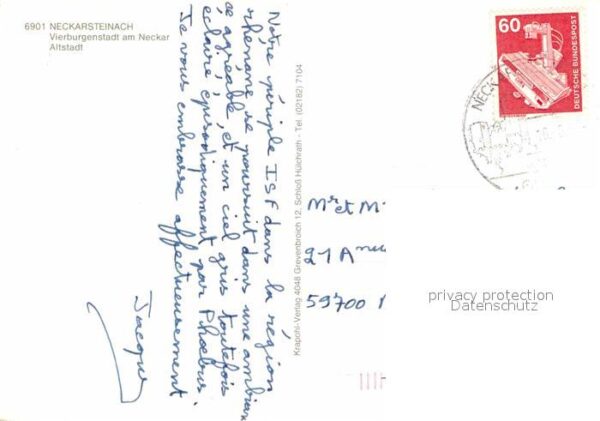 6901 NECKARSTEINACH
Vierburgenstadt am Neckar
Altstadt
Notre périple ISF dans la région
rhénane se poursuit dans une ambian
ce agréable, et un ciel gris toutefois
éclairé épisodiquement par Phoebus.
Je vous embrasse affectueusement.
Jacques
Krapohl-Verlag 4048 Grevenbroich 12, Schloß Hülchrath - Tel. (02182) 7104
60
DEUTSCHE BUNDESPOST
NECK
Mr et M
21 A
59700
privacy protection
Datenschutz